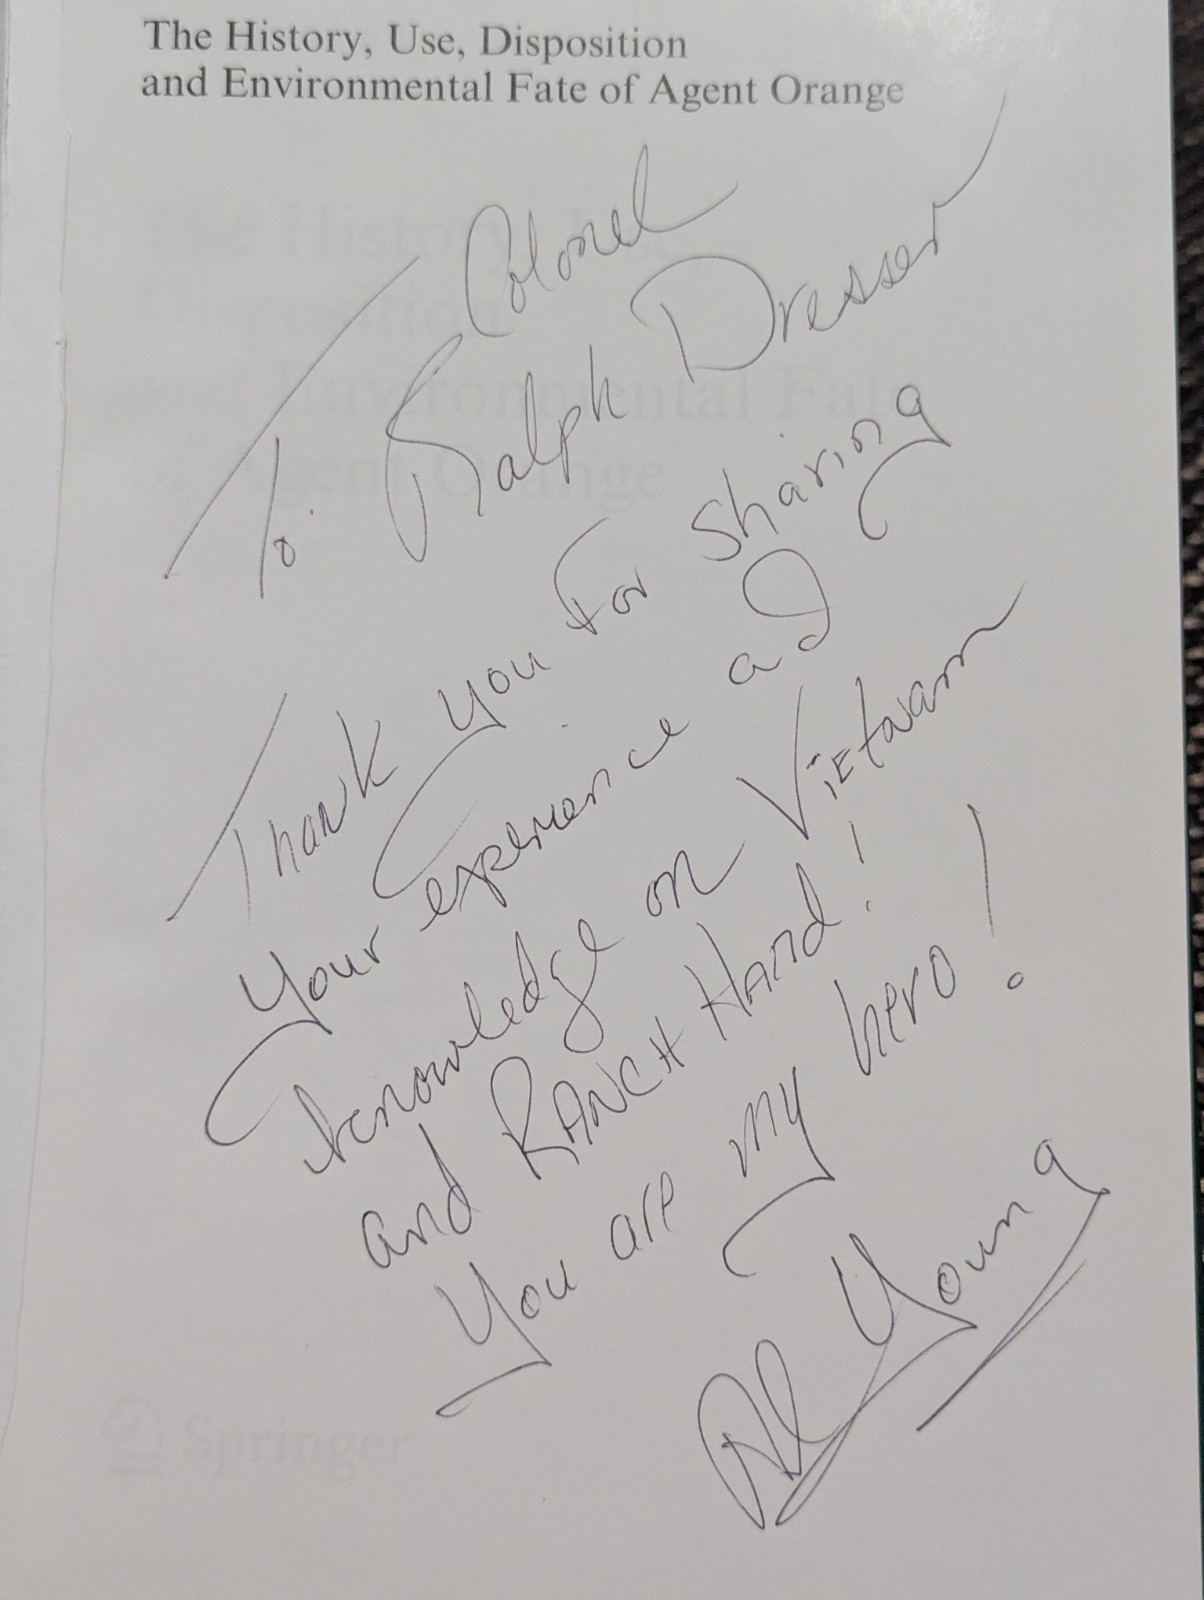 The History, Use, Disposition
and Environmental Fate of Agent Orange
To: Colonel
Ralph Dresser
Thank you For sharing
your experience ad
knowledge on Vietnam
and RANCH HAnd!
You are my hero!
Al Young
The History, Use,
Disposition
and Environmental Fate
of Agent Orange
Springer